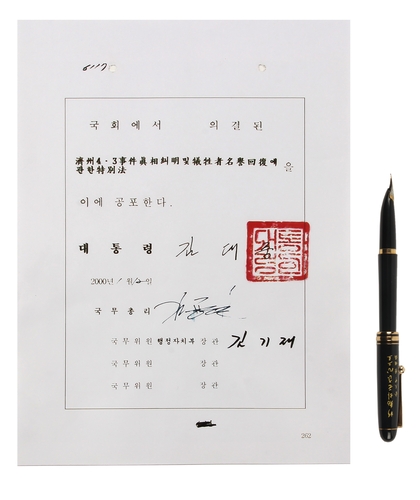 6117
국회에서 의결된
濟州4·3事件眞相糾明및犧牲者名譽回復에 을
관한特別法
이에 공포한다.
대통령 김대중
2000년 1월 12일
국무총리
국무위원 행정자치부 장관 김기재
국무위원 장관
국무위원 장관
262